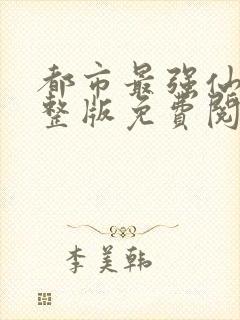 都市最强仙
整版免費閱
李美韩